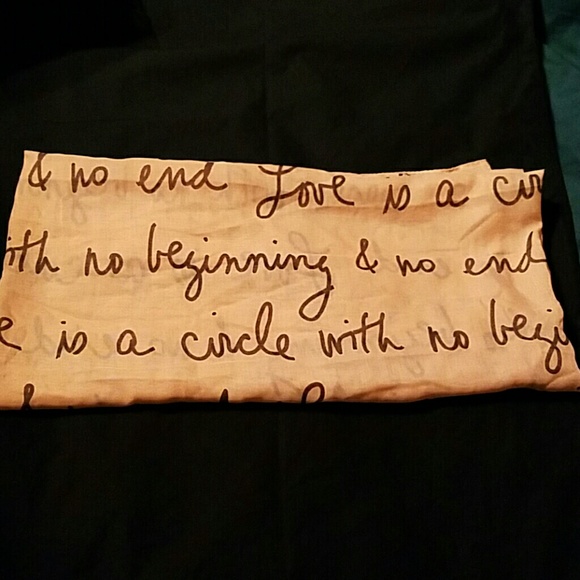 & no end Love is a cir
ith no beginning & no end
e is a circle with no begi